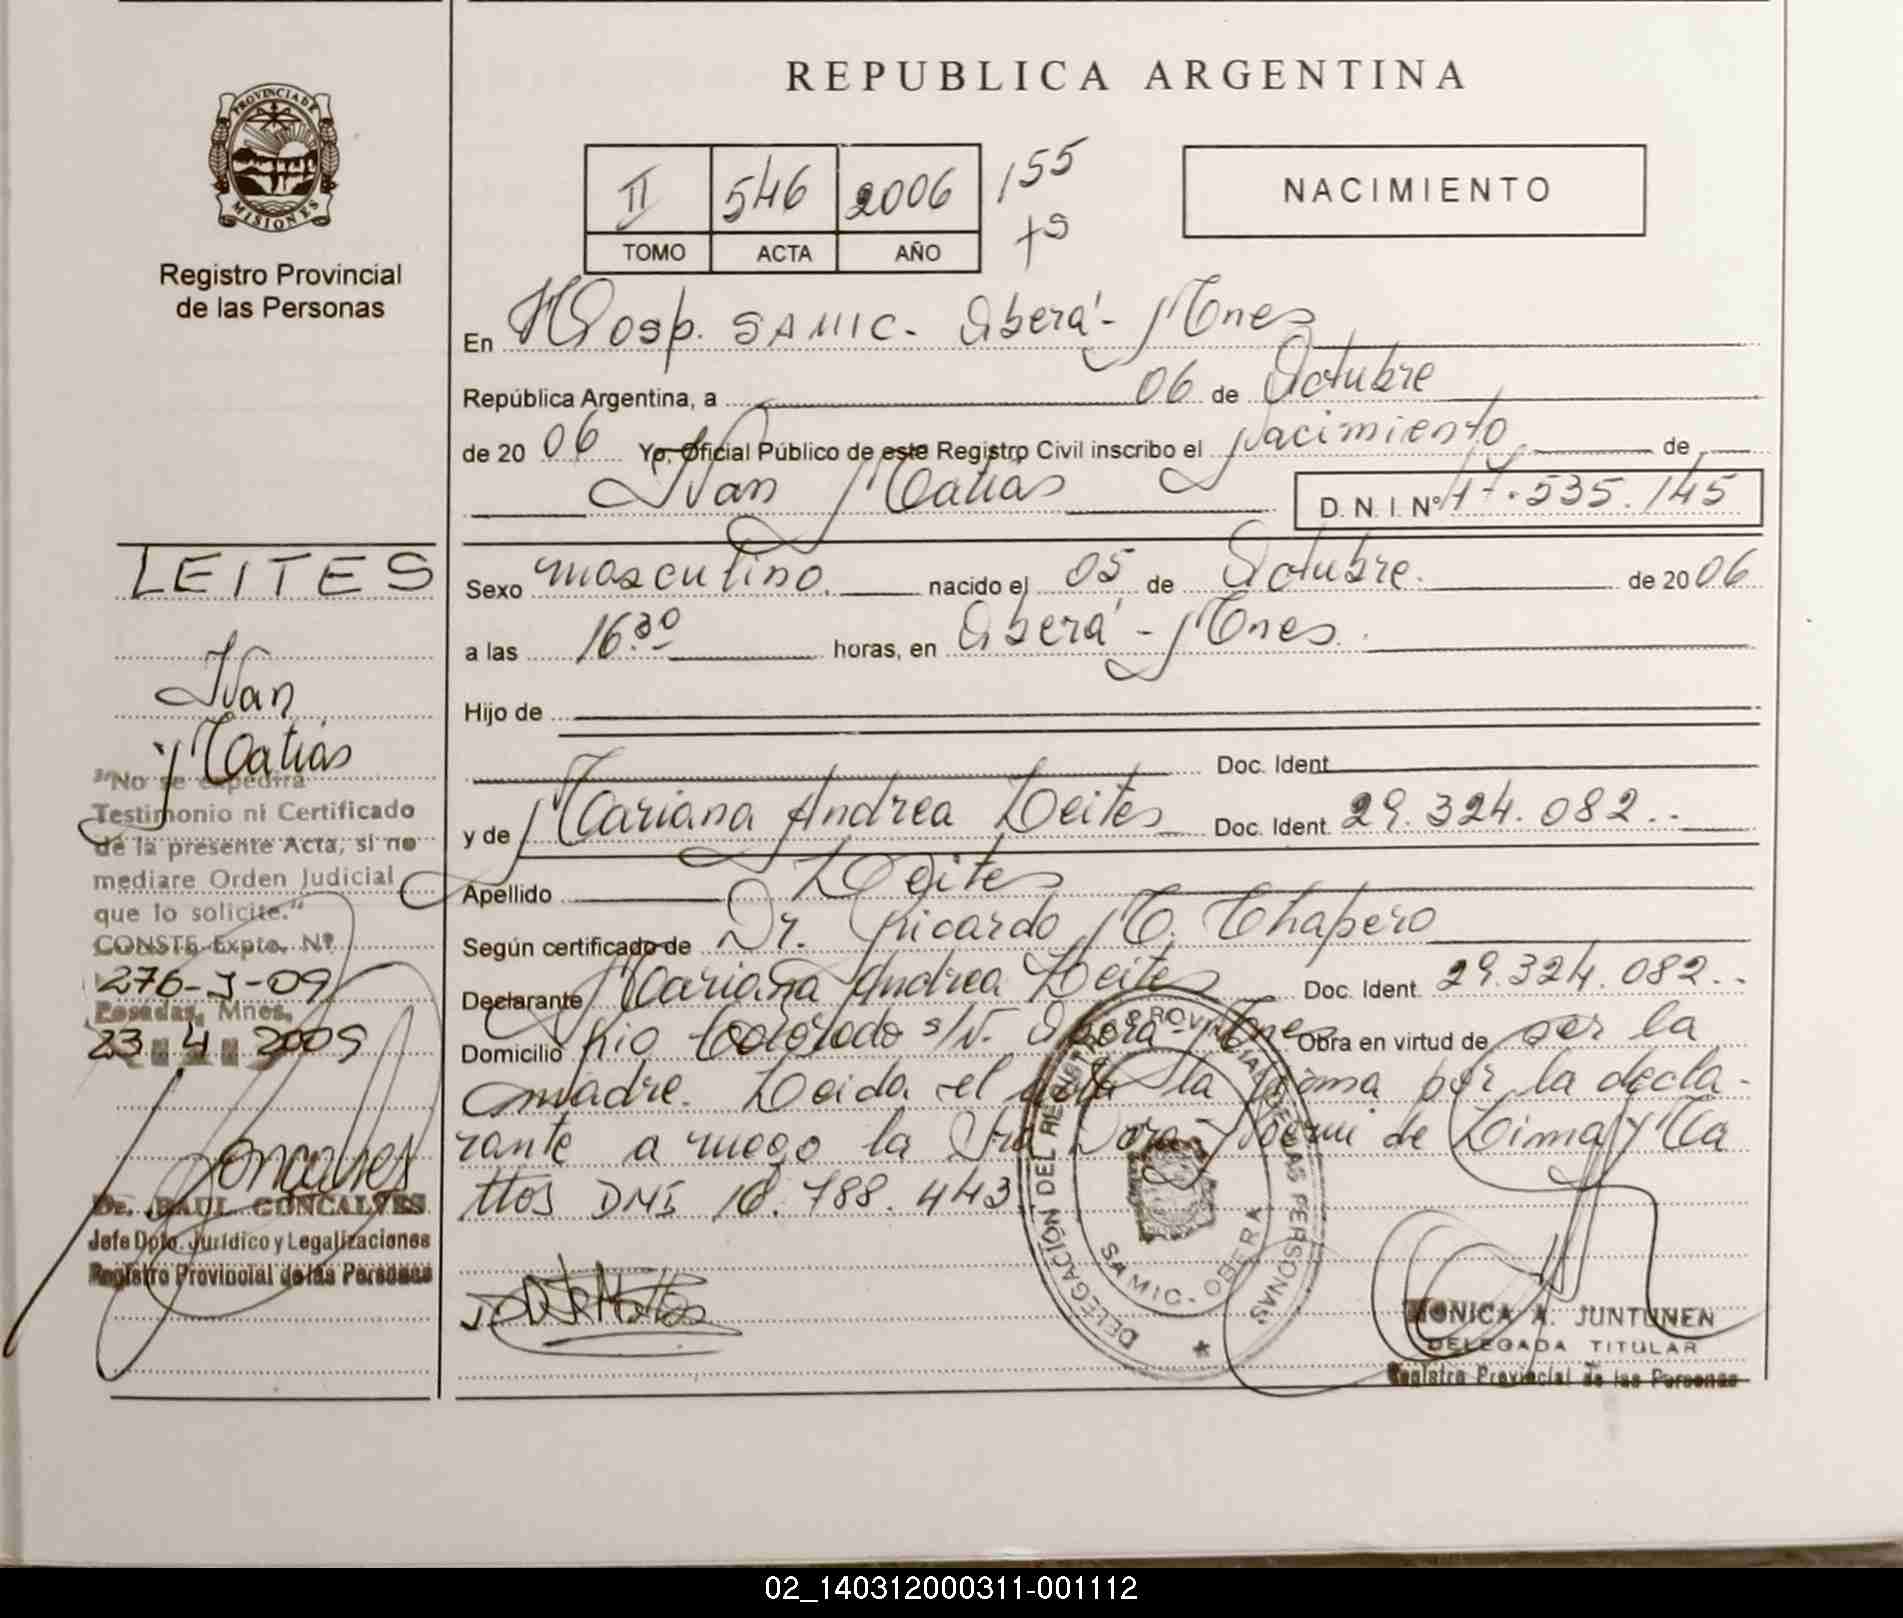 REPUBLICA ARGENTINA
PROVINCIA DE
MISIONES
Registro Provincial
de las Personas
II 546 2006 155
TOMO ACTA AÑO
NACIMIENTO
En Hosp. SAMIC - Oberá - Mnes
República Argentina, a 06 de Octubre
de 20 06 Yo, Oficial Público de este Registro Civil inscribo el Nacimiento de
Ivan Matias D. N. I. Nº 47.535.145
Sexo masculino. nacido el 05 de Octubre. de 20 06
a las 16.30 horas, en Oberá - Mnes.
Hijo de
Doc. Ident.
y de Mariana Andrea Leites Doc. Ident. 29.324.082..
Apellido Leites
Según certificado de Dr. Ricardo M. Chapero
Declarante Mariana Andrea Leites Doc. Ident. 29.324.082..
Domicilio Rio Colorado s/N. Oberá - Mnes Obra en virtud de ser la
madre. Leida el acta la firma por la decla-
rante a ruego la Sra Dora Noemi de Lima y Ma
ttos DNI 16.788.443
LEITES
Ivan
Matias
"No se expedirá
Testimonio ni Certificado
de la presente Acta, si no
mediare Orden Judicial
que lo solicite."
CONSTE Expte. Nº
276-J-09
Posadas, Mnes,
23 4 2009
Goncalves
Dr. RAUL GONCALVES
Jefe Dpto. Jurídico y Legalizaciones
Registro Provincial de las Personas
DELEGACIÓN DEL REGISTRO PROVINCIAL DE LAS PERSONAS
SAMIC - OBERA
MONICA A. JUNTUNEN
DELEGADA TITULAR
Registro Provincial de las Personas
02_140312000311-001112